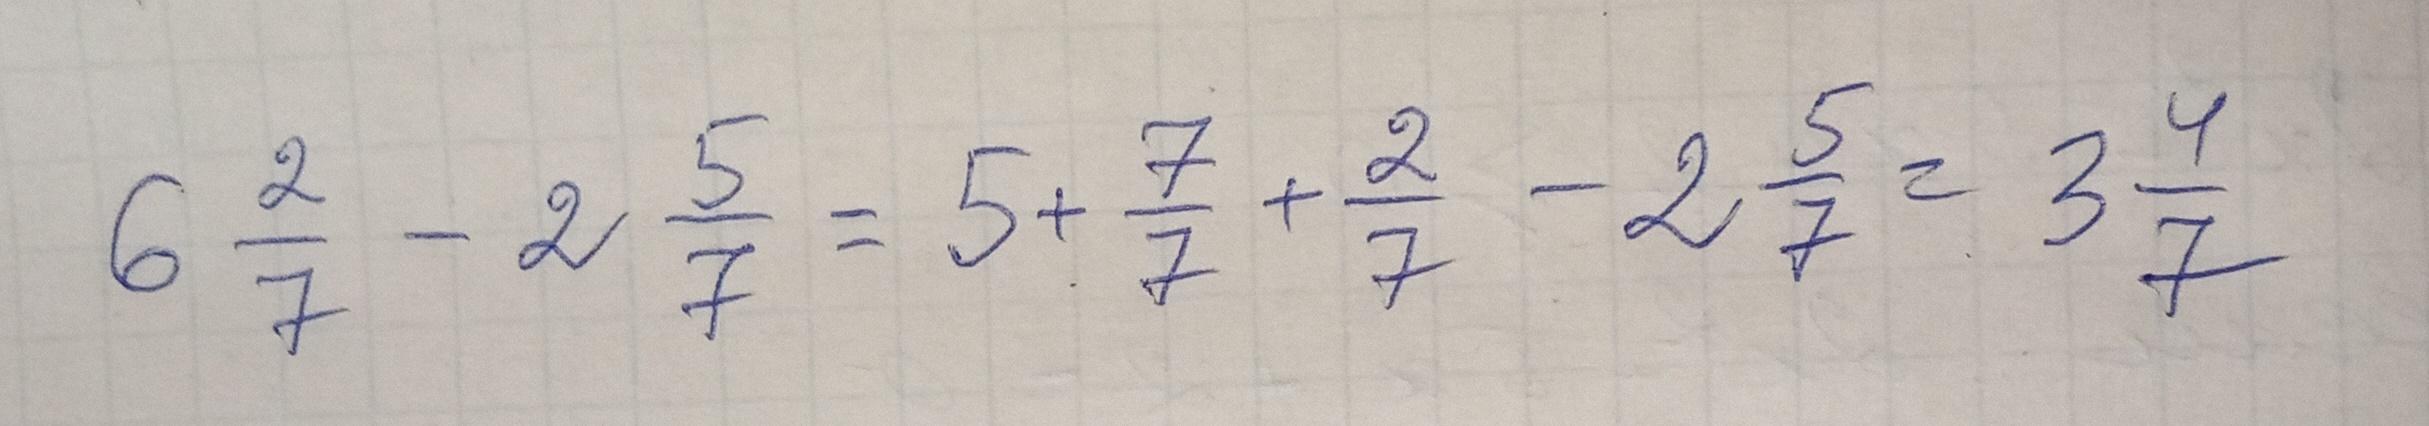 6 2/7 - 2 5/7 = 5 + 7/7 + 2/7 - 2 5/7 = 3 4/7